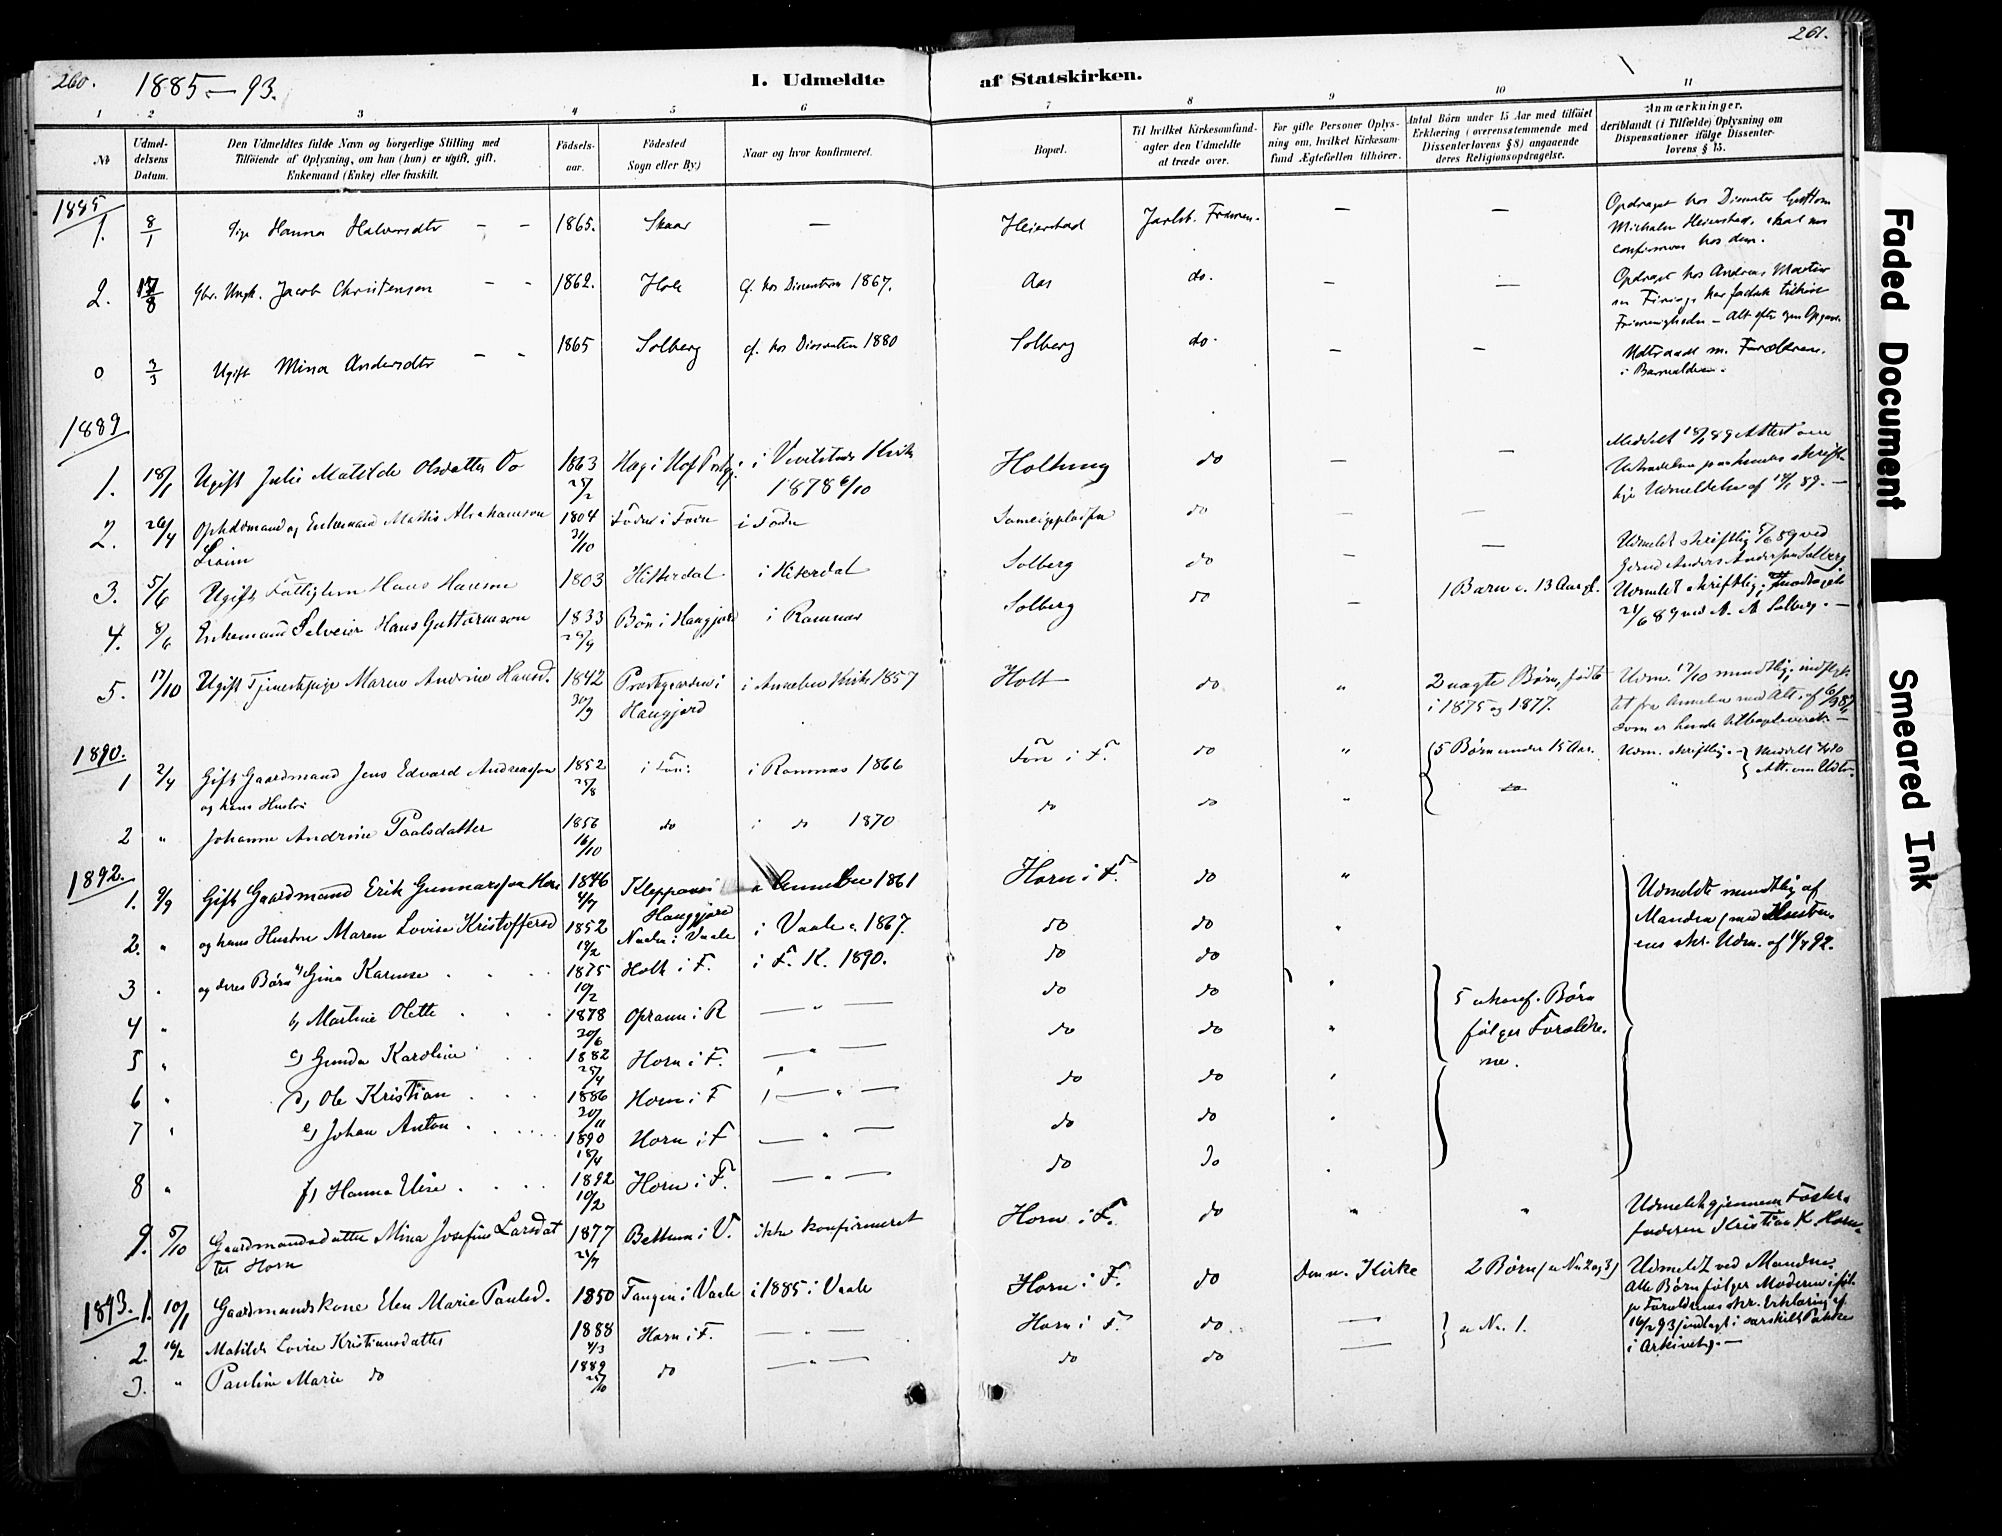 260.
1885–93.
I. Udmeldte
af Statskirken.
261.
1
2
3
4
5
6
7
8
9
10
11
No
Udmel-
delsens
Datum.
Den Udmeldtes fulde Navn og borgerlige Stilling med
Tilføiende af Oplysning, om han (hun) er ugift, gift,
Enkemand (Enke) eller fraskilt.
Fødsels-
aar.
Fødested
Sogn eller By.)
Naar og hvor konfirmeret.
Bopæl.
Til hvilket Kirkesamfund-
agter den Udmeldte
at træde over.
For gifte Personer Oplys-
ning om, hvilket Kirkesam-
fund Ægtefællen tilhører.
Antal Børn under 15 Aar med tilføiet
Erklæring (overensstemmende med
Dissenterlovens § 8) angaaende
deres Religionsopdragelse.
Anmærkninger,
deriblandt (i Tilfælde) Oplysning om
Dispensationer ifølge Dissenter-
lovens § 15.
1885
1. 8/1 Pige Hanna Halvorsdtr – – 1865. Skaar — Heierstad Jarlsb. Frimen. — — Opdraget hos Dissenter Guttorm
Michalsen Heierstad, skal
confirmeres hos dem.
2. 17/8 Gbr. Ungk. Jacob Christensen – – 1862. Hole cf. hos Dissentern 1867. Aas do. — — Opdraget hos Andreas
Frimenigheden – Alt efter egen Opgave
0 3/3 Ugift Mina Andersdtr – – 1865 Solberg cf. hos Dissenten 1880 Solberg do. — — Udtraadt m. Forældrene.
i Barnealderen.
1889
1. 18/1 Ugift Julie Matilde Olsdatter Vo 1863 25/2 Hag i Hof Prstgj. i Vivestads Kirke
1878 6/10 Holtung do — — Meddelt 18/1 89 Attest om
Udtrædelsen paa hendes skrift-
lige Udmeldelse af 17/1 89. —
2. 26/4 Opholdsmand og Enkemand Mathis Abrahamson 1804 31/10 i Foden do — —
3. 5/6 Ugift Fattiglem Hans Hansen 1803 Hitterdal i Hiterdal Solberg do — — Udmeldt skriftlig 5/6 89 ved
Anders Andersen Solberg
4. 8/6 Enkemand Selveier Hans Guttormson 1833 29/9 Bøn i Haugjord i Ramnæs Solberg do — 1 Barn c. 13 Aar gl. Udmeldt skriftlig,
25/6 89 ved A. A. Solberg. —
5. 17/10 Ugift Tjenestepige Maren Andrine Hansd. 1842 30/9 Prestegaarden i
Haugjord i Andebu Kirke 1857 Holt do " 2 uægte Børn, fødte
i 1875 og 1877. Udm. 17/10 mundtlig, indflyt-
tet fra Andebu med Att. af
som er hende tilbageleveret. —
1890.
1 2/4 Gift Gaardmand Jens Edvard Andreassen 1852 25/8 i Fon: i Ramnæs 1866 Fon i F. do " 5 Børn under 15 Aar. Udm. skriftlig. Meddelt
Att. om Udtr.
og hans Hustru
2 " Johanne Andrine Paalsdatter 1856 16/10 do i do 1870 do do " do "
1892.
1. 9/9 Gift Gaardmand Erik Gunnarsson Horn 1846 4/7 Kleppan i
Haugjord i Andebu 1861 Horn i F. do " Udmeldt mundtlig af
Manden (med Hustru-
ens skr. Udm. af 11/7 92.
2. " og hans Hustru Maren Lovise Kristoffersd 1852 19/2 i Vaale i Vaale c. 1867. do do "
3 " og deres Børn a) Gina Karense 1875 10/2 Holt i F. i F. K. 1890. do do "
4 " b) Martine Olette 1878 20/6 Opram i R — " — do do "
5 " c) Gunda Karoline 1882 25/4 Horn i F. — " — do do "
6 " d) Ole Kristian 1886 20/11 Horn i F — " — do do "
7 " e) Johan Anton 1890 18/4 Horn i F — " — do do "
8 " f) Hanna Elise 1892 10/2 Horn i F. — " — do do "
5 ukonf. Børn
følger Forældre-
ne.
9. 5/10 Gaardmandsdatter Mina Josefine Larsdat
ter Horn 1877 25/7 Bettum i V. ikke konfirmeret Horn i F. do " " Udmeldt gjennem Foster-
faderen Kristian K. Horn
1893. 1. 10/1 Gaardmandskone Elen Marie Paulsd. 1850 Tangen i Vaale i 1885 i Vaale Horn i F. do Den n. Kirke 2 Børn (se No 2 og 3) Udmeldt ved Manden
Alle Børn følger Moderen iføl-
ge Forældrenes skr. Erklæring af
16/2 93 indlagt i særskilt Pakke
i Arkivet. —
2. 16/2 Matilde Lovise Kristiansdatter 1888 4/3 Horn i F. — " — Horn i F. do — se No. 1.
3. " Pauline Marie do 1889 25/10 do — " — do do —
Faded Document
Smeared Ink